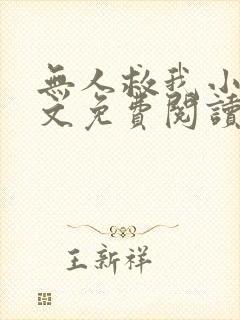 無人救我小
文免費閱讀
王新祥